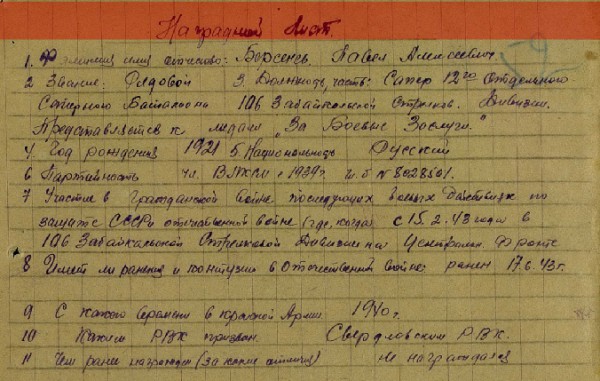 Наградной Лист.
1. Фамилия имя отчество: Борсенев Павел Алексеевич
2 Звание: Рядовой 3. Должность, часть: Сапер 12го Отдельного
Саперного Баталиона 106 Забайкальской Стрелков. Дивизии.
Представляется к медали „За Боевые Заслуги."
4. Год рождения 1921 5. Национальность Русский
6 Партийность чл. ВЛКСМ с 1939г. ч. б №8028501.
7 Участие в Гражданской войне последующих боевых действиях по
защите СССР и отечественной войне (где, когда) с 15.2.43 года в
106 Забайкальской Стрелковой Дивизии на Центральн. Фронте
8 Имеет ли ранения и контузии в Отечественной войне: ранен 17.6.43г.
9 С какого времени в красной Армии 1940г.
10 Каким РВК призван. Свердловским РВК.
11 Чем ранее награжден (за какие отличия) не награждался